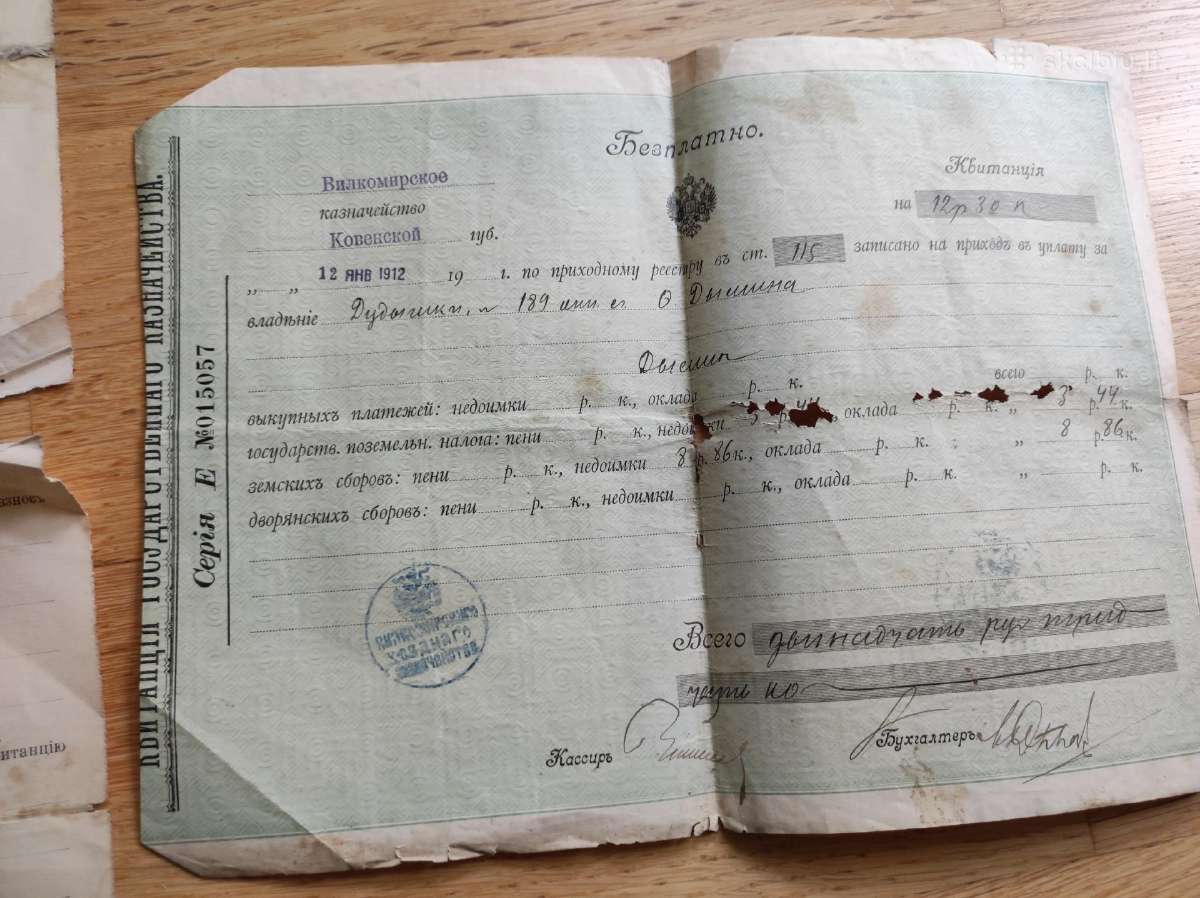 skelbiu.lt
Безплатно.
Вилкомирское
казначейство
Ковенской губ.
Квитанція
на 12 р 30 к
„ „ 12 ЯНВ 1912 19 г. по приходному реестру въ ст. 115 записано на приходъ въ уплату за
владѣніе 189
всего р. к.
выкупныхъ платежей: недоимки р. к., оклада р. к.
государств. поземельн. налога: пени р. к., недоимки 3 р. 44, оклада р. к. „ 3 р. 44 к.
земскихъ сборовъ: пени р. к., недоимки 8 р. 86 к., оклада р. к. „ 8 р. 86 к.
дворянскихъ сборовъ: пени р. к., недоимки р. к., оклада р. к. „ р. к.
Всего двинадцать руб трид
цать ко
Кассиръ
Бухгалтеръ
КВИТАНЦІЯ ГОСУДАРСТВЕННАГО КАЗНАЧЕЙСТВА.
Серія Е №015057
казначейства
итанцію